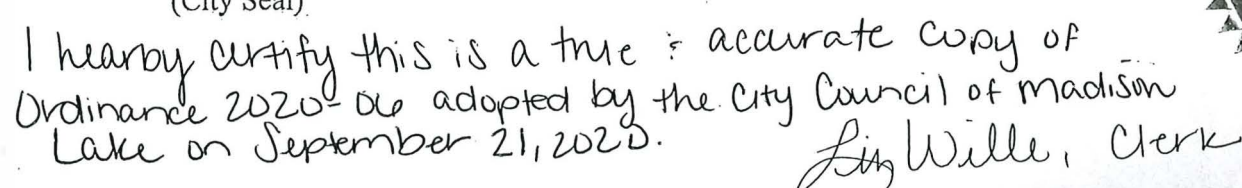 (City Seal)
I hearby certify this is a true & accurate copy of
Ordinance 2020-06 adopted by the City Council of Madison
Lake on September 21, 2020.
Liz Wille, Clerk